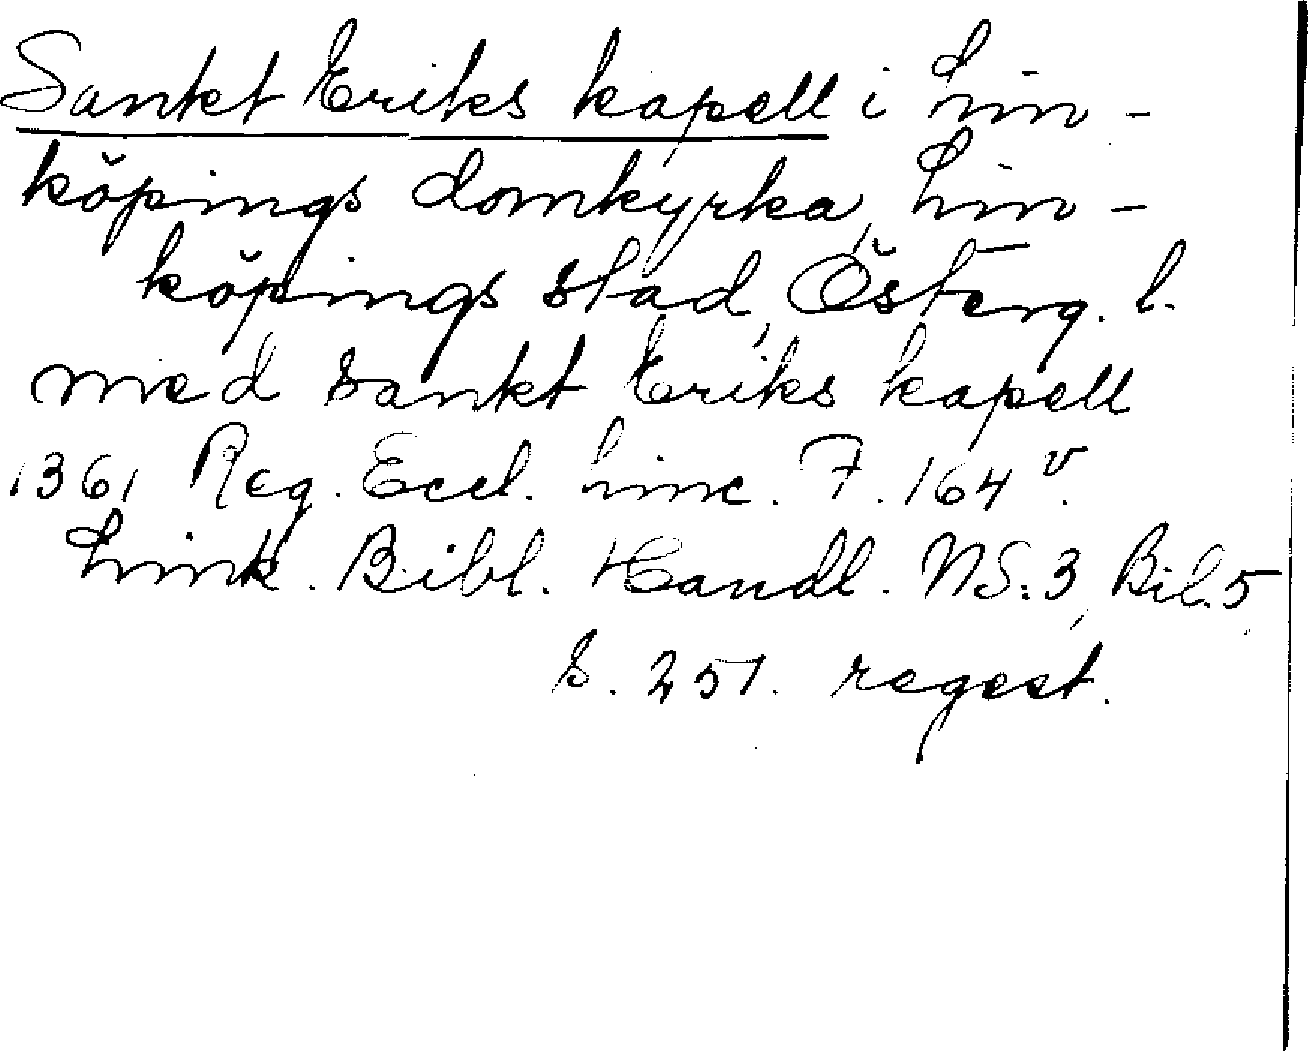 Sankt Eriks kapell i Lin-
köpings domkyrka, Lin-
köpings stad, Österg. l.
med sankt Eriks kapell
1361 Reg. Eccl. Linc. F. 164 v.
Link. Bibl. Handl. NS:3, Bil. 5,
s. 251. regest.